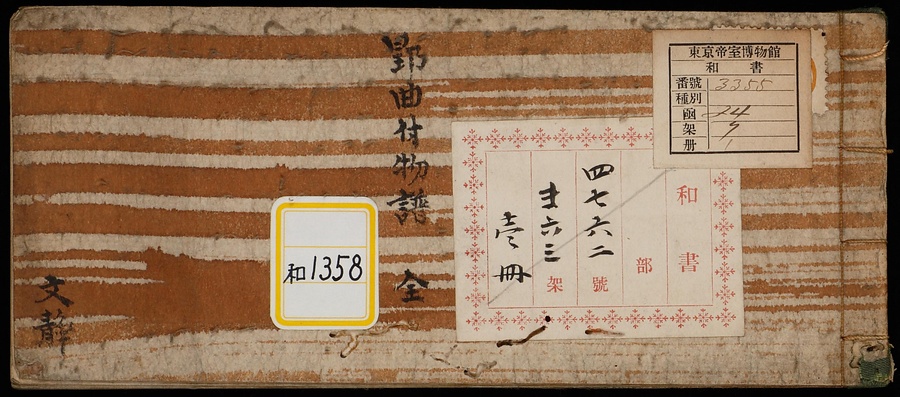 郢曲付物譜 全
文静
和1358
和書
部
四七六二號
ま, 六三架
壹冊
東京帝室博物館
和書
番號 3355
種別
函 24
架 9
册 1